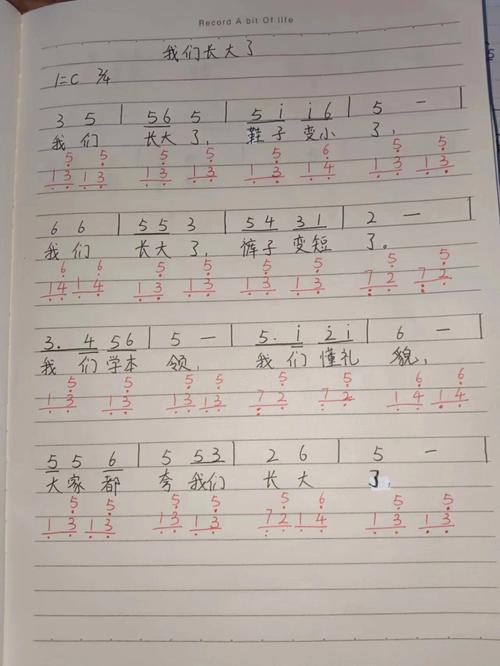 Record A bit Of life
我们长大了
1=C 2/4
3 5 | 5 6 5 | 5 i i 6 | 5 — |
我 们 长大 了, 鞋子 变小 了,
5 5 5 5 5 6 5 5
1 3 1 3 1 3 1 3 1 3 1 4 1 3 1 3
6 6 | 5 5 3 | 5 4 3 1 | 2 — |
我 们 长大 了, 裤子 变短 了。
6 6 5 5 5 5 5 5
1 4 1 4 1 3 1 3 1 3 1 3 7 2 7 2
3. 4 5 6 | 5 — | 5. i 2 i | 6 — |
我 们 学本 领, 我 们 懂礼 貌,
5 5 5 5 5 5 6 6
1 3 1 3 1 3 1 3 7 2 7 2 1 4 1 4
5 5 6 | 5 5 3 | 2 6 | 5 — |
大 家 都 夸 我们 长 大 了
5 5 5 5 5 6 5 5
1 3 1 3 1 3 1 3 7 2 1 4 1 3 1 3